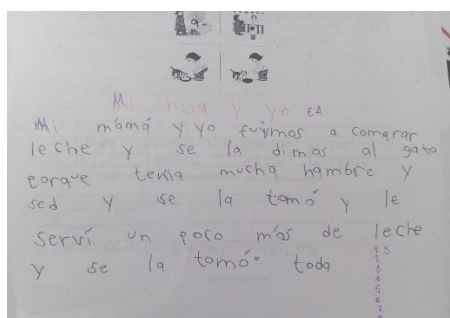 Mi hija y yo E.A.
Mi mamá y yo fuymos a comqrar
leche y se la dimos al gato
eorque tenia mucha hambre y
sed y se la tomó y le
serví un poco más de leche
y se la tomó toda